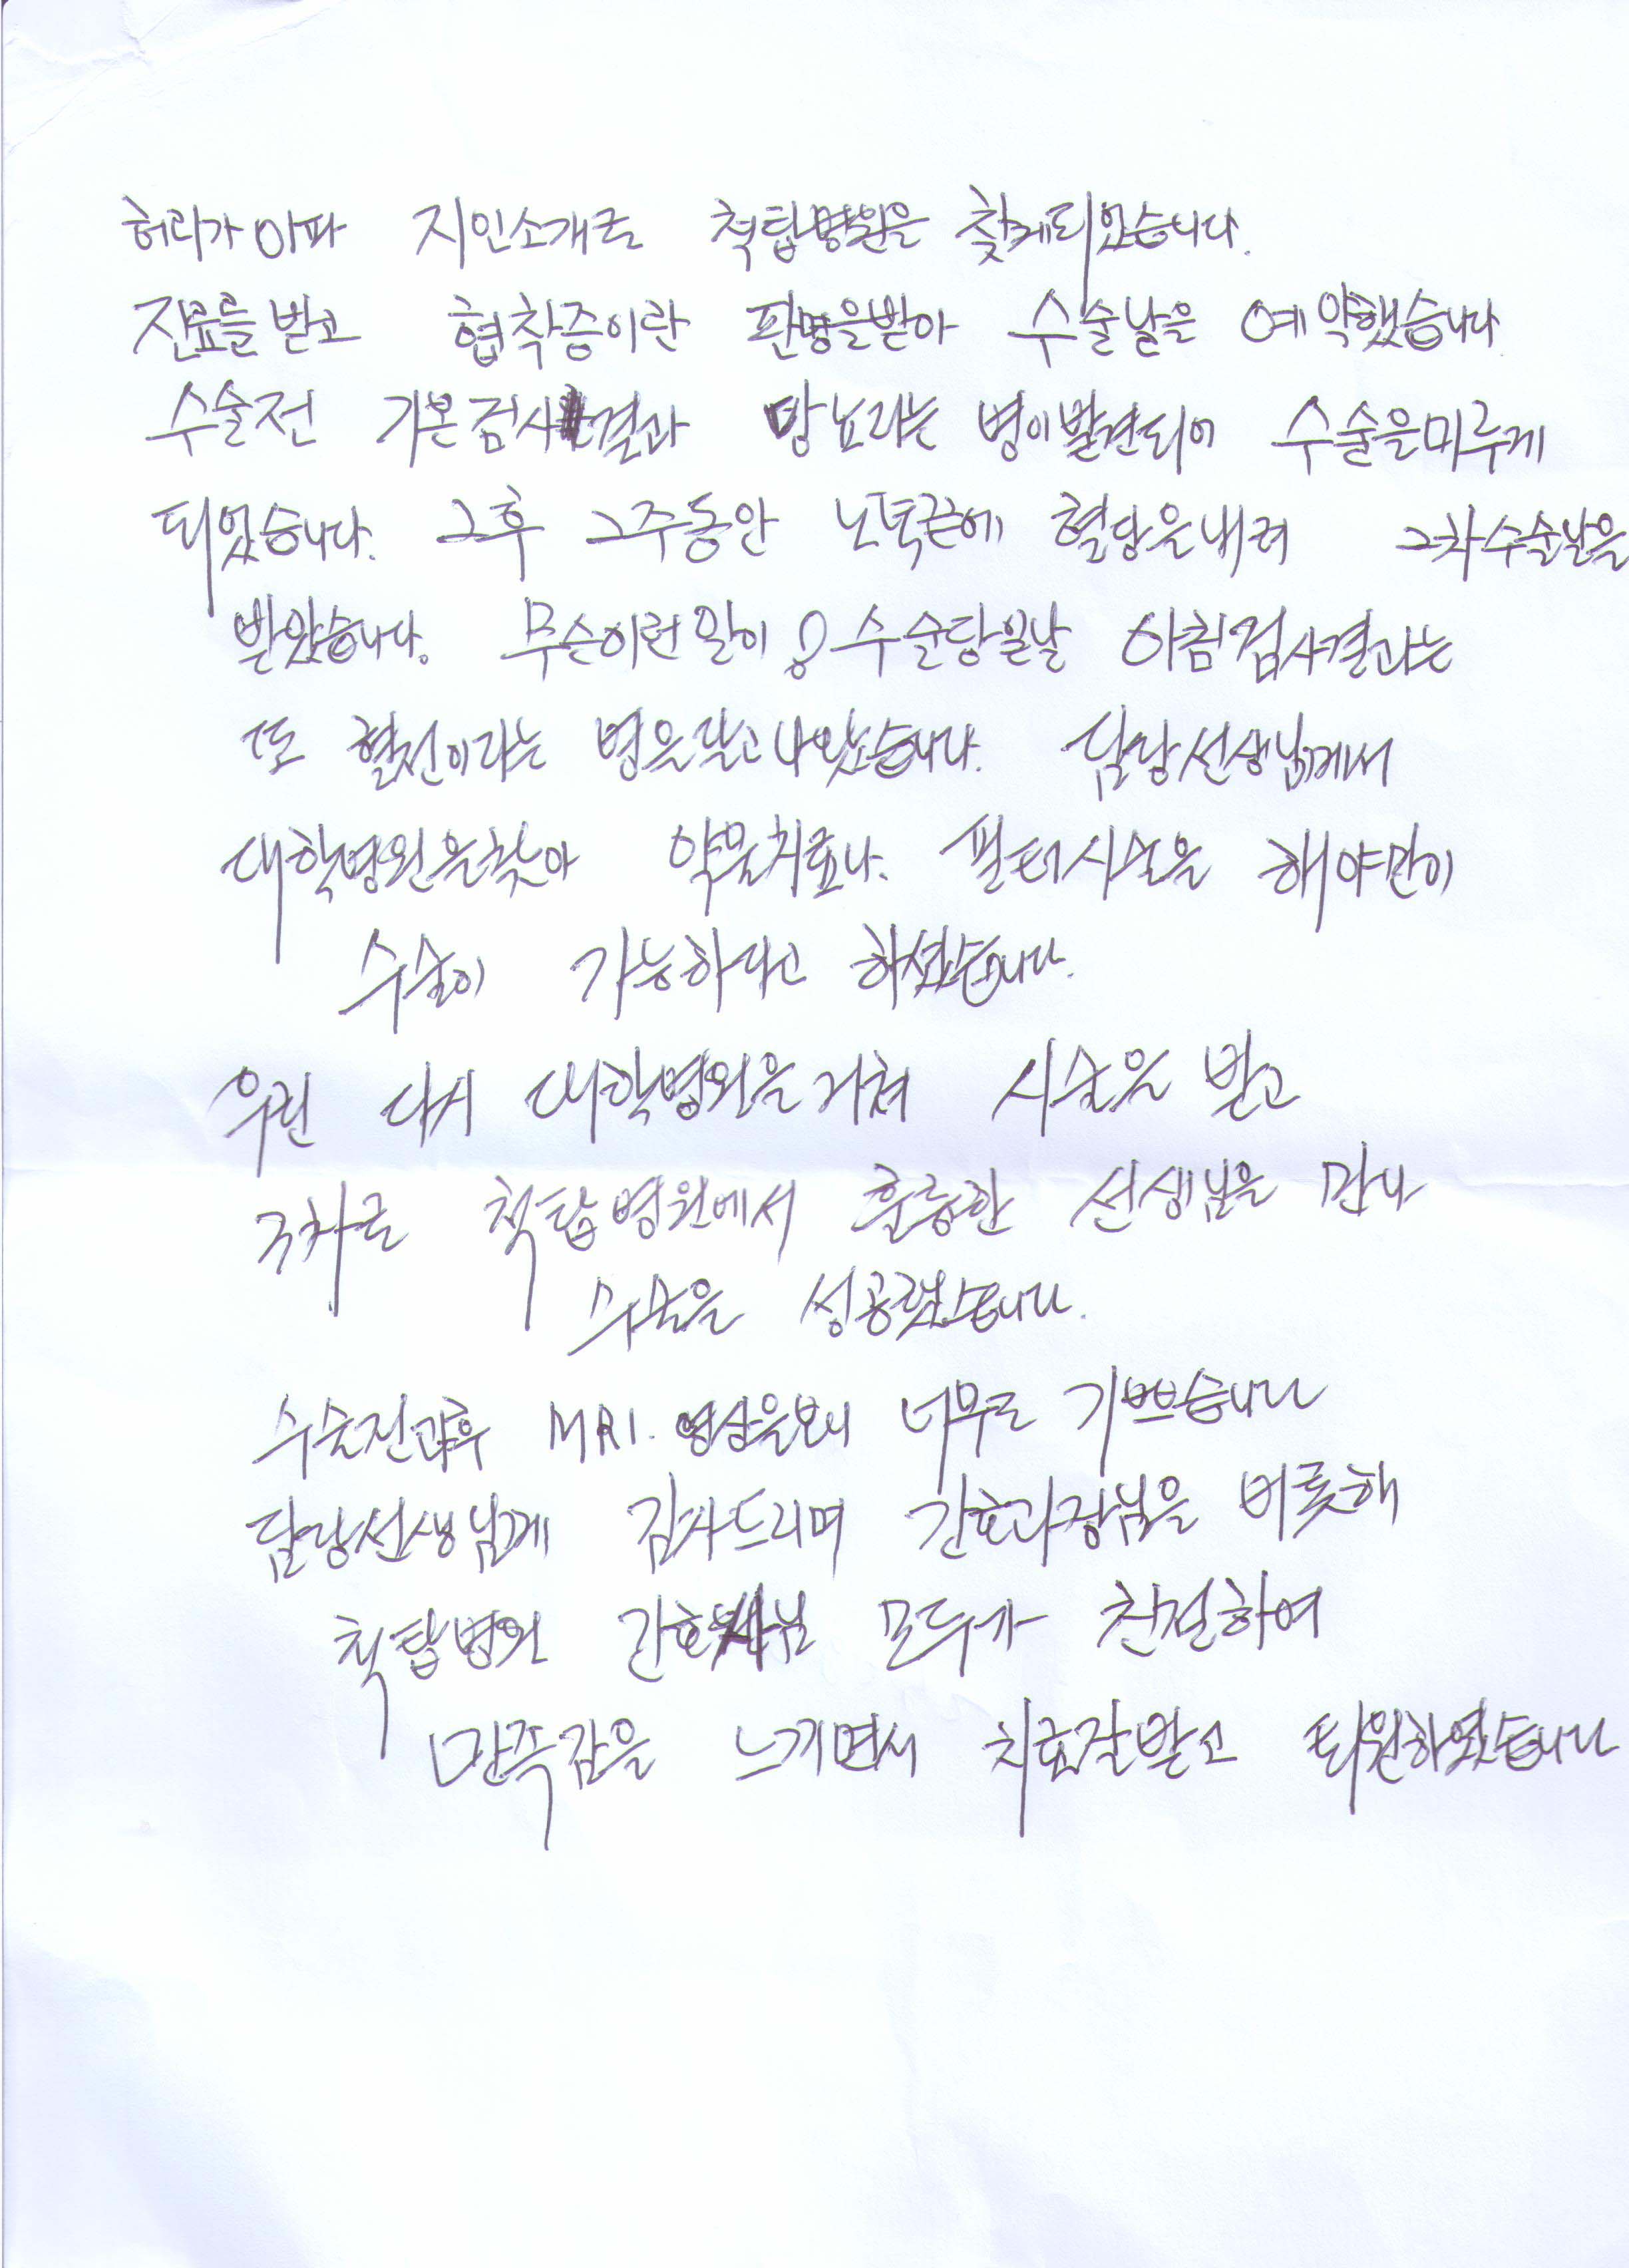 허리가 아파 지인소개로 척탑병원을 찾게되었습니다.
진료를 받고 협착증이란 판명을받아 수술날을 예약했습니다
수술전 기본검사결과 당뇨라는 병이발견되어 수술을미루게
되었습니다. 그후 2주동안 노력끝에 혈당을내려 2차수술날을
받았습니다. 무슨이런일이? 수술당일날 아침검사결과는
또 혈전이라는 병은달고나왔습니다. 담당선생님께서
대학병원을찾아 약물치료나. 필터시술을 해야만이
수술이 가능하다고 하셨습니다.
우린 다시 대학병원을 거쳐 시술을 받고
3차로 척탑병원에서 훌륭한 선생님을 만나
수술을 성공했습니다.
수술전과후 MRI. 영상을보니 너무도 기쁘습니다
담당선생님께 감사드리며 간호과장님을 비롯해
척탑병원 간호사님 모두가 친절하여
만족감을 느끼면서 치료잘받고 퇴원하였습니다